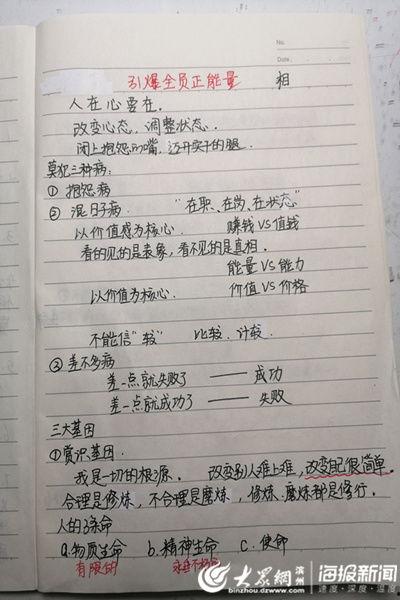 No.
Date
引爆全员正能量 相
人在心要在。
改变心态，调整状态。
闭上抱怨的嘴，迈开实干的腿
莫犯三种病：
①抱怨病
②混日子病。 “在职、在岗、在状态”
以价值感为核心 赚钱VS值钱
看的见的是表象，看不见的是真相。
能量VS能力
以价值为核心. 价值VS价格
不能信“较” 比较、计较
③差不多病
差一点就失败了 —— 成功
差一点就成功了 —— 失败
三大基因
①赏识基因.
我是一切的根源。 改变别人难上难，改变自己很简单。
合理是修炼，不合理是磨炼，修炼.磨炼都是修行。
人的3条命
a.物质生命 b.精神生命 c.使命
有限的
大众网 滨州 海报新闻
www.binzhou.dzwww.com 速度·深度·温度